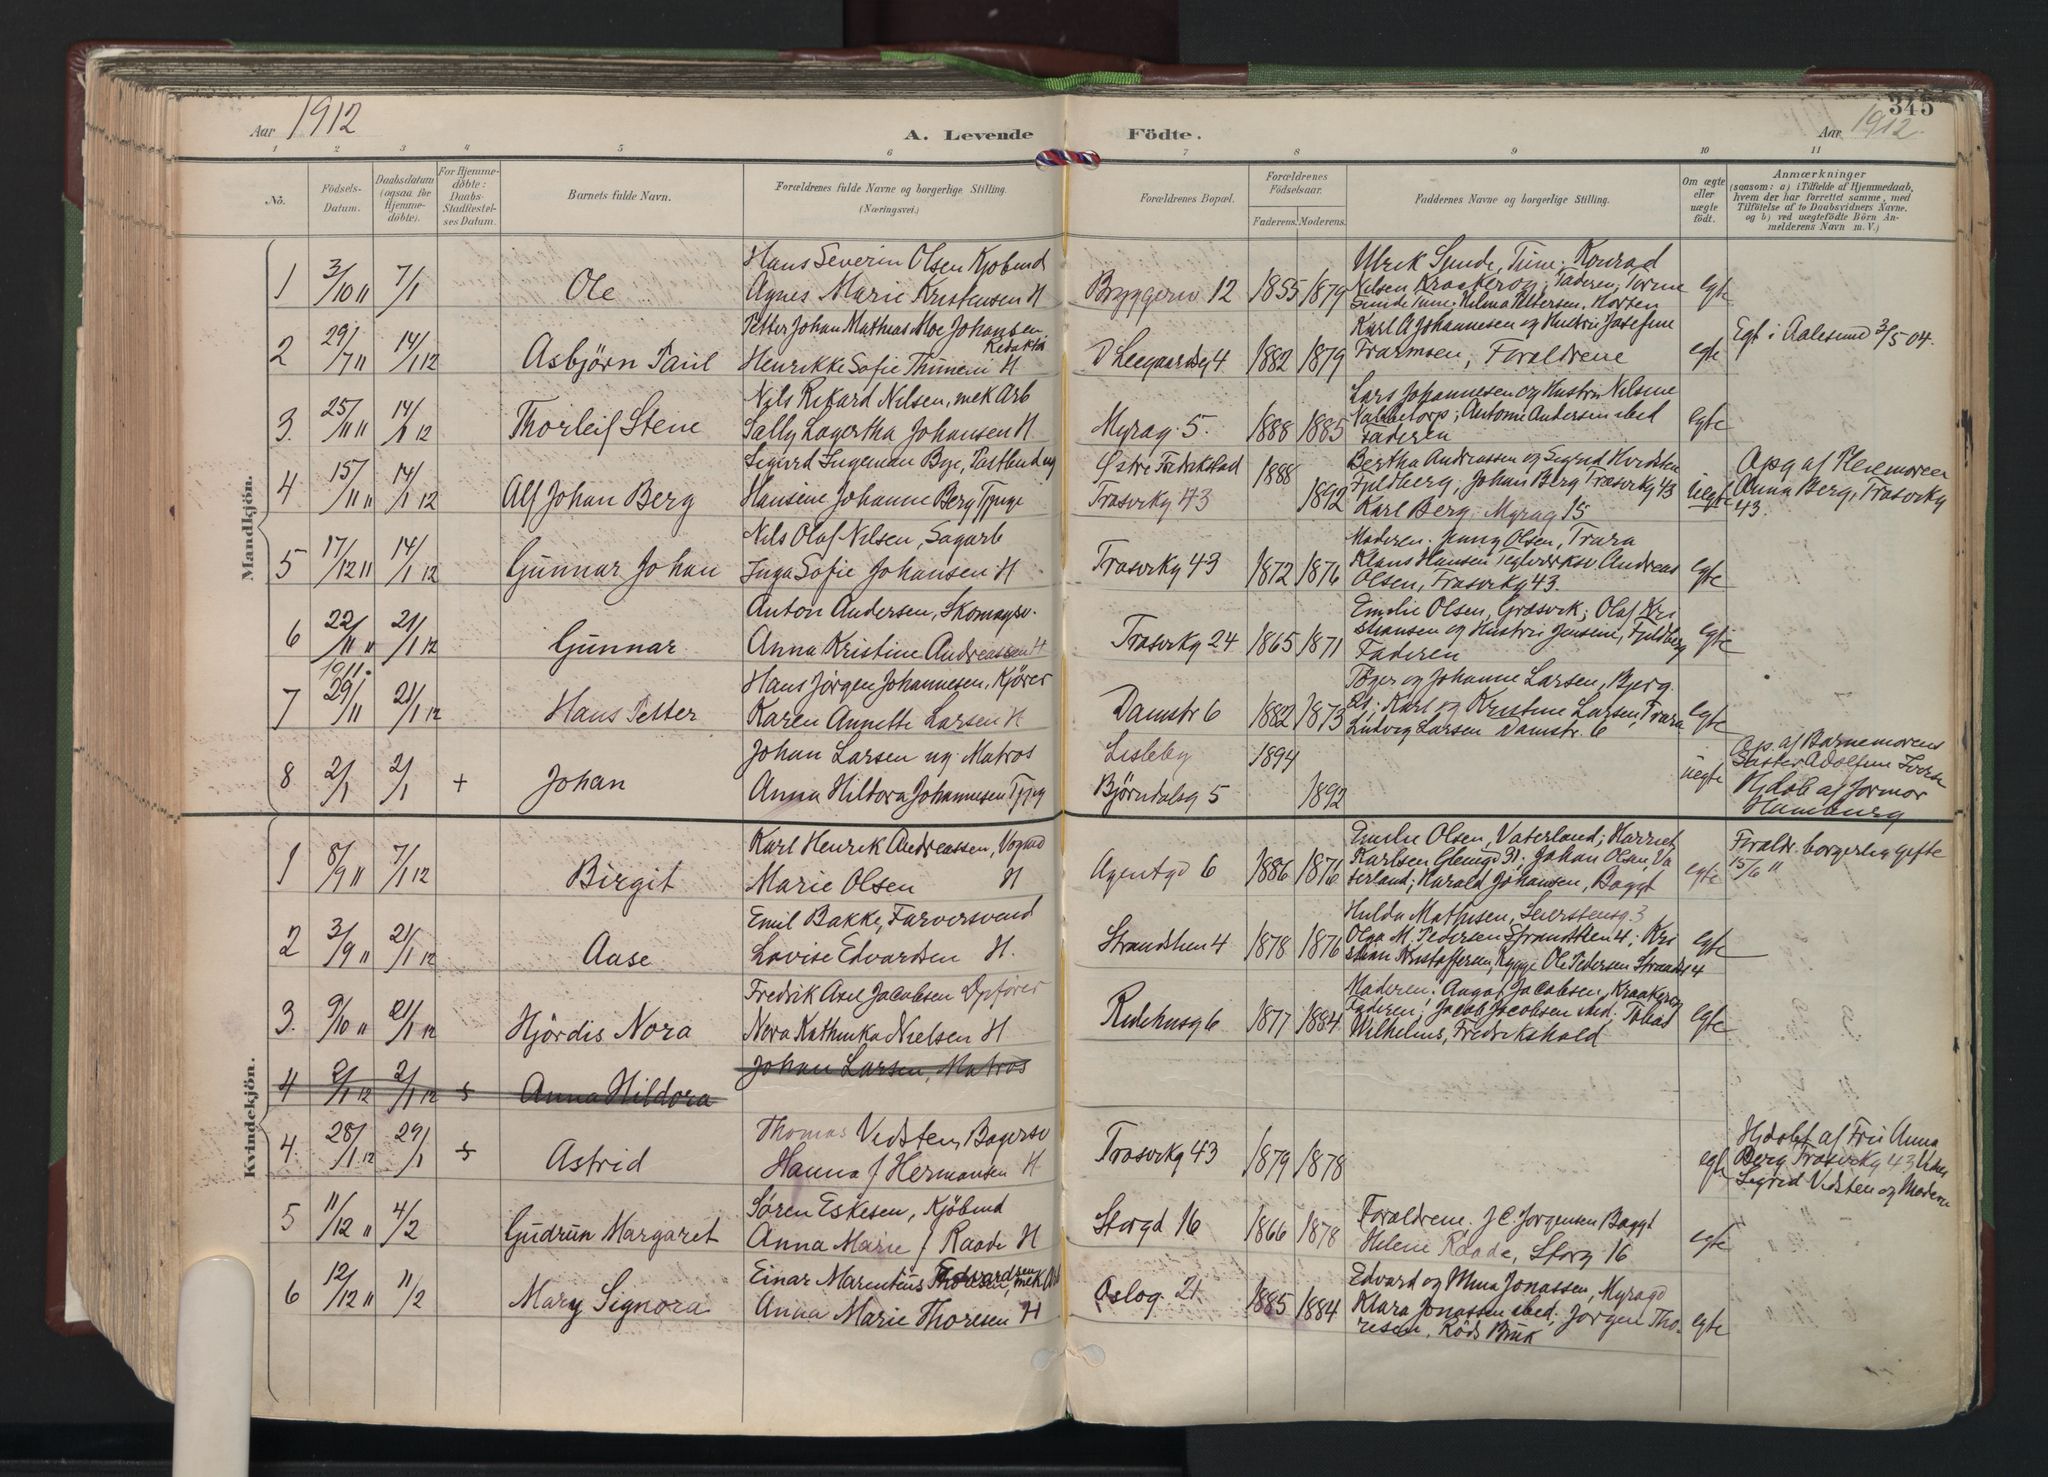 345
Aar 1912
A. Levende
Födte.
Aar 1912.
1 2 3 4 5 6 7 8 9 10 11
No.
Födsels-
Datum.
Daabsdatum
(ogsaa for
Hjemme-
döbte).
For Hjemme-
döbte:
Daabs-
Stadfæstel-
ses Datum.
Barnets fulde Navn.
Forældrenes fulde Navne og borgerlige Stilling.
(Næringsvei.)
Forældrenes Bopæl.
Forældrenes
Födselsaar.
Faderens. Moderens.
Faddernes Navne og borgerlige Stilling.
Om ægte
eller
uægte
födt.
Anmærkninger
(saasom: a) i Tilfælde af Hjemmedaab,
hvem der har forrettet samme, med
Tilföielse af to Daabsvidners Navne.
og b) ved uægtefödte Börn An-
melderens Navn m. V.)
Mandkjön.
1 3/10 " 7/1 Ole
Hans Severin Olsen Kjøbmd
Agnes Marie Kristensen H
Bryggeriv 12 1855 1879
Ulrik Sunde, Tune. Konrad
Nilsen Kraakerøy; Faderen; Torine
Sunde Tune. Hilma Pettersen, Horten
egte
2 29/7 " 14/1 12 Asbjörn Paul
Petter Johan Mathias Moe Johansen
Redaktör
Henrikke Sofie H
1882 1879
Karl A Johannesen og Hustru Josefine
Foraldrene
egte
Egt i Aalesund 3/5 04.
3. 25/11 " 14/1 12 Thorleif Stene
Nils Rikard Nilsen, mek Arb
Sally Lagertha Johansen H
Myrag. 5. 1888 1885
Lars Johannesen og Hustru Nilsine
Antonie Andersen sted
Faderen
egte
4 15/11 " 14/1 12 Alf Johan Berg
Sigurd Ingeman Bye, ug
Hansine Johanne Berg Tjpige
Østre Fredrikstad 1888
Trosvikg 43 1892
Bertha Andreassen og Sigrid
Fjeldberg, Johan Berg Trosvikg 43
Karl Berg, Myrag 15
uegte
Apg af
Anna Berg, Trosvikg
43.
5 17/12 " 14/1 12 Gunnar Johan
Nils Olaf Nilsen, Sagarb
Inga Sofie Johansen H
Trosvikg 43 1872 1876
Moderen. Jenny Olsen, Trara
Klaus Hansen Teglverksv Andreas
Olsen, Trosvikg 43.
egte
6 22/11 " 21/1 12 Gunnar
Anton Andersen, Skomagsv.
Anna Kristine Andreassen H
Trosvikg 24 1865 1871
Emilie Olsen, Græsvik; Olaf Kri
stiansen og Hustru Jensine, Fjeldberg
Faderen
egte
7 29/11 21/1 12 Hans Petter
Hans Jörgen Johannesen, Kjörer
Karen Annette Larsen H
Damstr 6 1882 1873
og Johanne Larsen, Bjerg.
Karl og Kristine Larsen, Trara
Ludvig Larsen Damstr. 6
egte
8 2/1 2/1 + Johan
Johan Larsen ug. Matros
Anna Hildora Johannesen Tjpig
Lisleby 1894
Björndalsg 5 1892
uegte
Ap. af Barnemorens
Söster Adolfine
Hjdöb af Jormor
Hamburg
Kvindekjön.
1 8/9 " 7/1 12 Birgit
Karl Henrik Andreassen, Vognmd
Marie Olsen H
Agentgd 6 1886 1876
Emilie Olsen, Vaterland; Harriet
Karlsen Glemge Pl. Johan Olsen, Va
terland; Harald Johansen, Baggt
egte
Foraldr. borgerlig gifte
15/6 "
2 3/9 " 21/1 12 Aase
Emil Bakke, Farversvend
Lovise Edvardsen H.
Strandhen 4 1878 1876
Hulda Mathisen, 3
Olga M. Pedersen Strandhen 4; Kri
stian Kristoffersen, Rygge Ole Pedersen Strandh 4
egte
3. 9/10 " 21/1 12 Hjördis Nora
Fredrik Axel Jacobsen Opfører
Nora Kathinka Nielsen H
1877 1884
Moderen. Jacobsen, Kraakerøy
Faderen; Jacob Jacobsen sted.
Wilhelms, Fredrikshald
egte
4 2/1 12 2/1 12 + Anna Hildora
Johan Larsen, Matros
4. 28/1 12 29/1 + Astrid
Thomas Vidsten, Bagersv
Hanna f Hermansen H
Trosvikg 43 1879 1878
egte
Hjdöbt af Fru Anna
Berg Trosvikg 43
Sigrid Vidsten og Moderen
5 11/12 " 4/2 Gudrun Margaret
Søren Eskesen, Kjöbmd
Anna Marie f Raade H
Storgd 16 1866 1878
Foraldrene. J.C. Jorgensen Baggt
Helene Raade, Storg 16
egte
6 12/12 " 11/2 Mary Signora
Einar Marentius Edvardsen, mek Arb
Anna Marie Thoresen H
Oslog. 21. 1885 1884
Edvard og Mina Jonassen, Myragd
Klara Jonassen sted. Jörgen Tho-
resen, Röds Bruk
egte